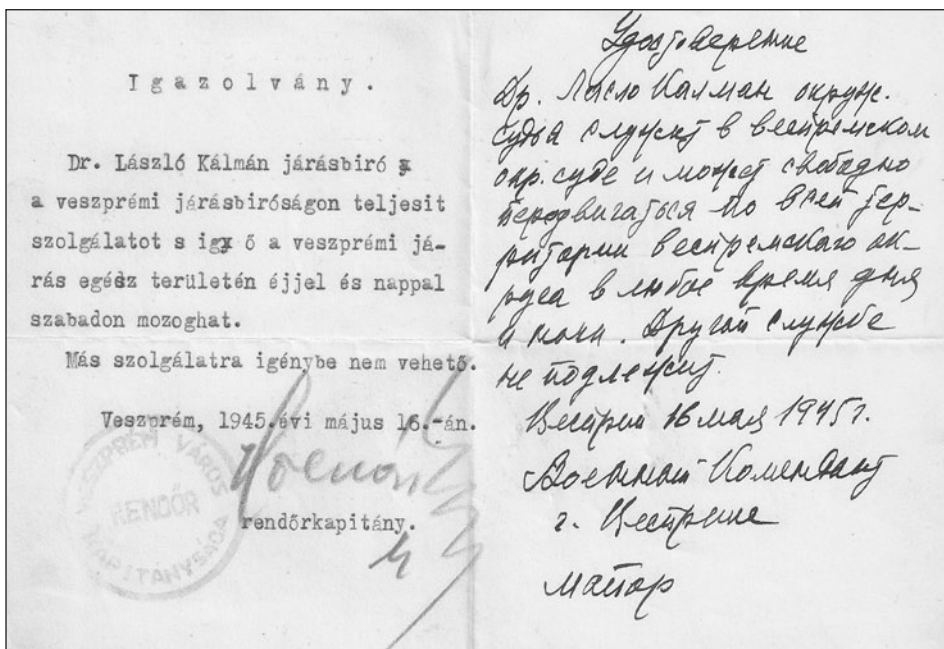 Igazolvány.
Dr. László Kálmán járásbiró s
a veszprémi járásbiróságon teljesit
szolgálatot s igy ő a veszprémi já-
rás egész területén éjjel és nappal
szabadon mozoghat.
Más szolgálatra igénybe nem vehető.
Veszprém, 1945.évi május 16.-án.
rendőrkapitány.
VESZPRÉM VÁROS
RENDŐR
KAPITÁNYSÁGA
Удостоверение
Др. Ласло Калман окруж.
судья служит в веспремском
окр. суде и может свободно
передвигаться по всей тер-
ритории веспремскаго ок-
руга в любое время дня
и ночи. Другой службе
не подлежит.
Веспрем 16 мая 1945 г.
Военный Комендант
г. Веспрема
майор